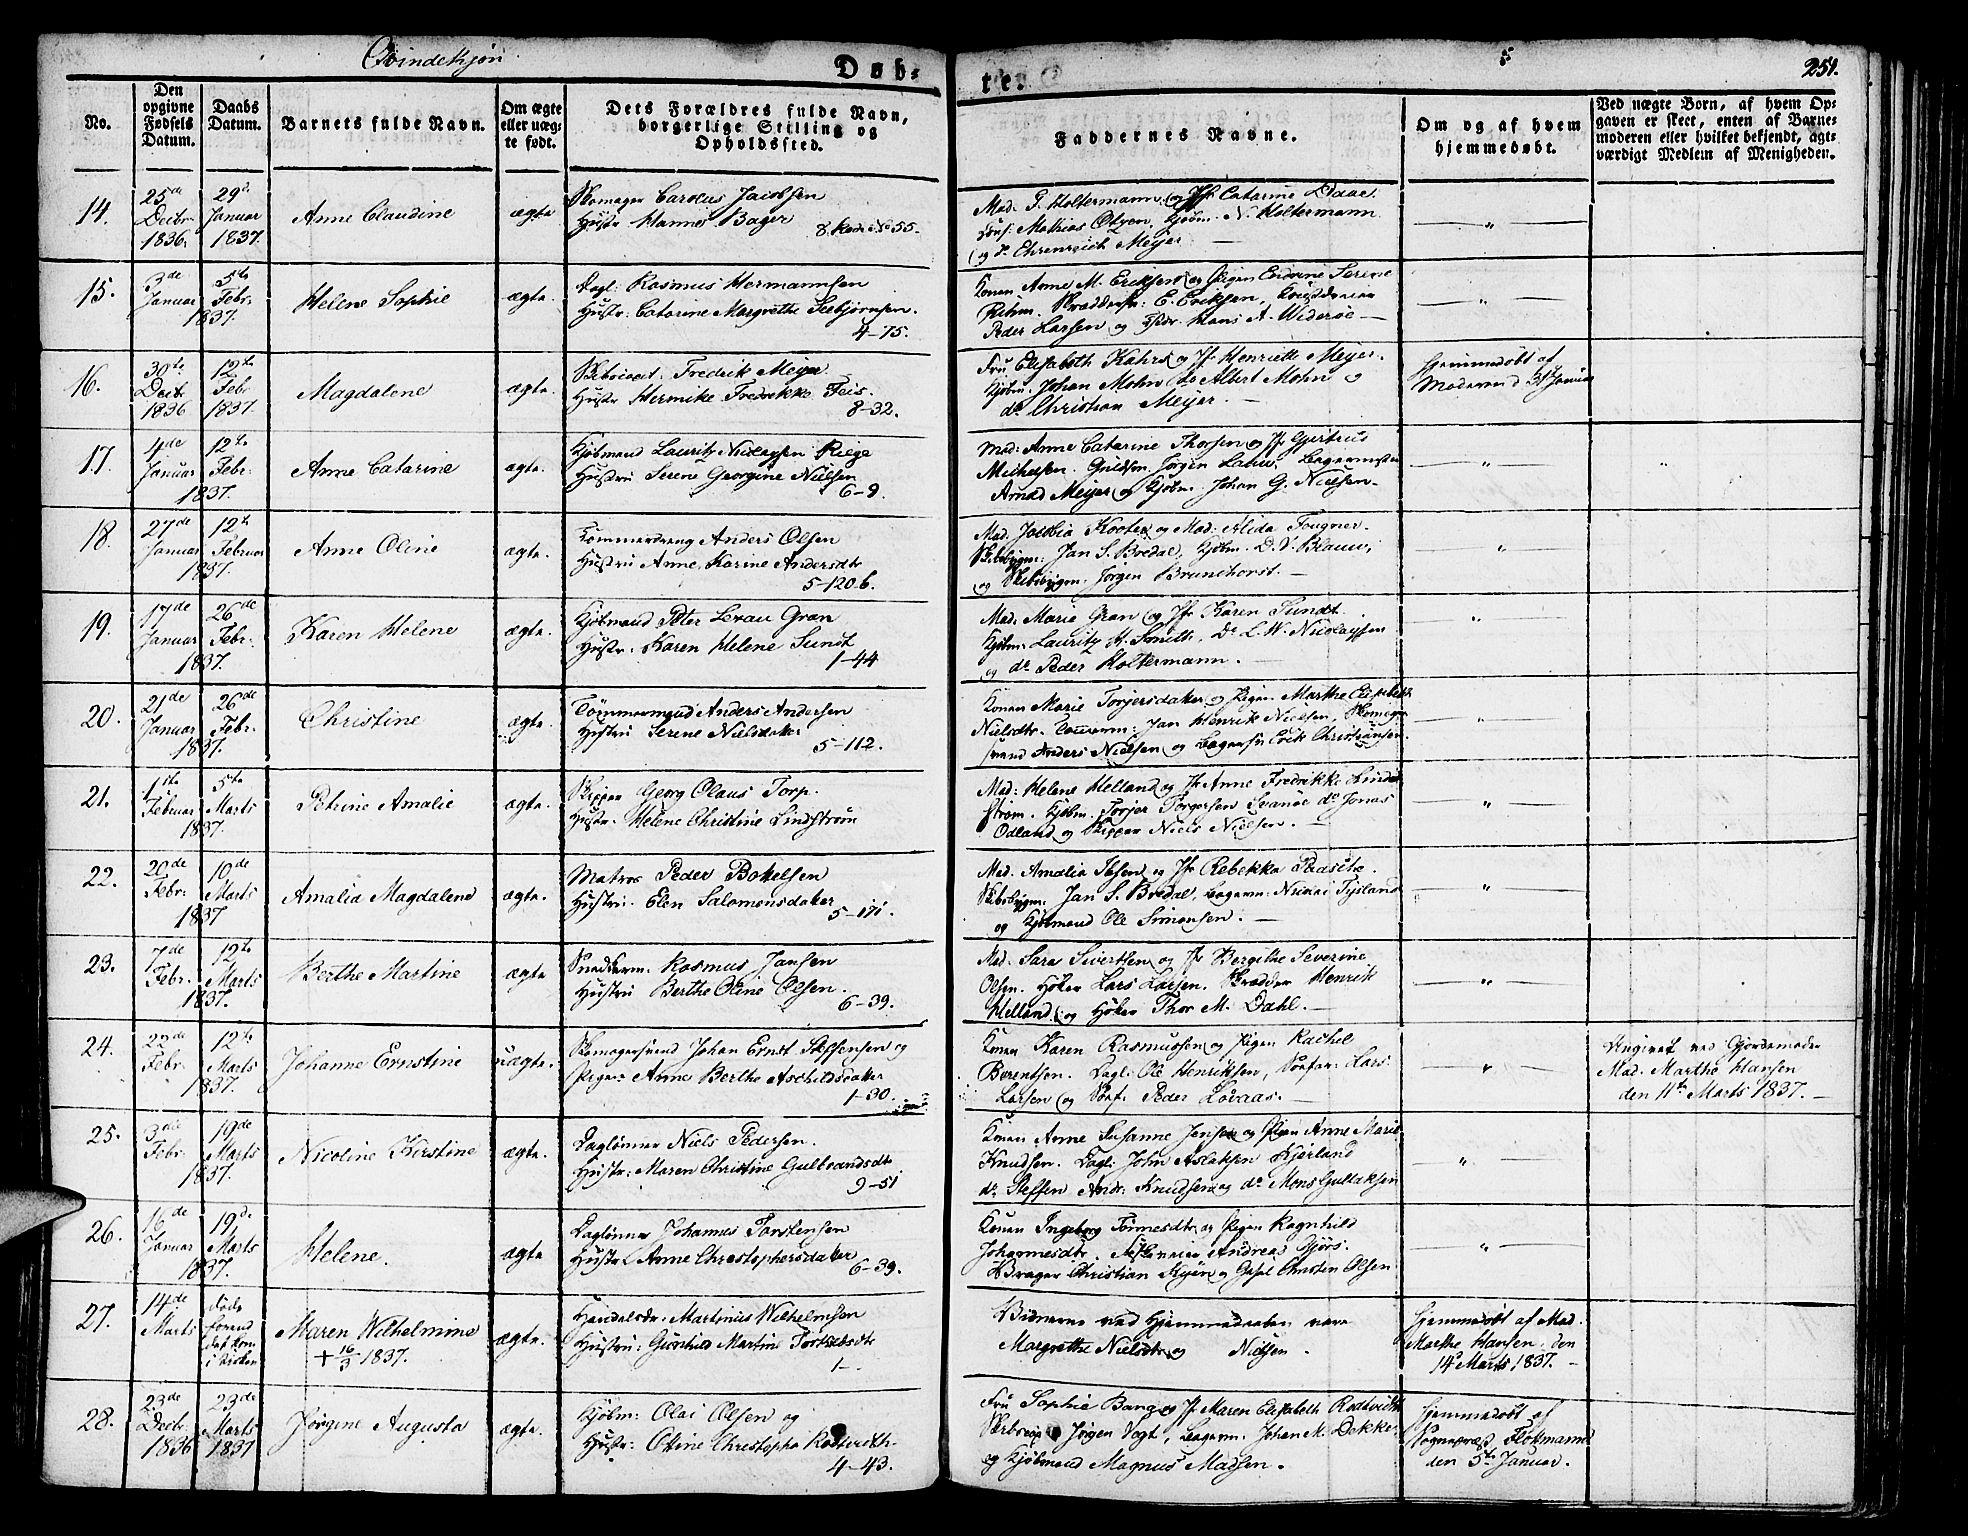 Qvindekjøn
Døb-
te.
251.
No.
Den opgivne Fødsels Datum.
Daabs Datum.
Barnets fulde Navn.
Om ægte eller uægte født.
Dets Forældres fulde Navn, borgerlige Stilling og Opholdssted.
Faddernes Navne.
Om og af hvem hjemmedøbt.
Ved uægte Børn, af hvem Opgaven er skeet, enten af Barnemoderen eller hvilket bekjendt, agtværdigt Medlem af Menigheden.
14. 25de Decbr. 1836. 29de Januar 1837. Anne Claudine ægte
Skomager Carolus Jacobsen
Hustr. Hanne Bager 8 Rode No 55.
Mad. P. Holtermann og Jfr Catarine Daae.
Mathias Olsen, Kjøbm. N. Holtermann
og do Ehrenreich Meyer —
15. 3de Januar 5te Febr. 1837. Helene Sophie ægte.
Dagl. Rasmus Hermannsen
Hustr. Catarine Margrethe Seebjørnsen.
4-75.
Konen Anne M. Eriksen og Pigen Endrine Serene
Rehm. E. Eriksen,
Peder Larsen og Hans A. Widerøe —
16. 30te Decbr 1836 12te Febr 1837. Magdalene ægte.
Fredrik Meyer
Hustr Hermike Fredrikke Feis.
8-32.
Fru Elisabeth Kahrs og Jfr Henriette Meyer.
Kjøbm. Johan Mohn do Albert Mohn og
do Christian Meyer. —
Hjemmedøbt af
Moderen d 31 Januar
17. 4de Januar 12te Febr. 1837. Anne Catarine ægte.
Kjøbmand Lauritz Nicolaysen Riege
Hustru Serene Georgine Nielsen
6-9.
Mad: Anne Catarine Thorsen og Jfr Gjertrus
Michelsen. Guldsm. Jørgen
Arnold Meyer og Kjøbm. Johan G. Nielsen —
18. 27de Januar 12te Februar 1837. Anne Oline ægte.
Tømmerdreng Anders Olsen
Hustru Anne Karine Andersdtr
5-120 b.
Mad. Jacobia Kooter og Mad. Alida Fougner.
Skibsbygm. Jan S. Bredal, Kjøbm. D. V. Blauw,
og Skibsbygm. Jørgen Brunchorst. —
19. 17de Januar 26de Febr. 1837. Karen Helene ægte.
Kjøbmand Peter Gran
Hustr. Karen Helene Sundt
1-44
Mad. Marie Gran og Jfr Karen Sundt.
Kjøbm. Lauritz H. Smitt, Do L. W. Nicolaysen
og do Peder Holtermann. —
20. 21de Januar 26de Febr. 1837. Christine ægte.
Tømmermand Anders Andersen
Hustru Serene Nielsdatter
5-112.
Konen Marie Torgersdatter og Pigen Marthe Elisabeth
Nielsdtr. Tømmerm. Jan Henrik Nielsen, Skomager
svend Anders Nielsen og Bagersv Erik Christiansen.
21. 1ste Februar 5te Marts 1837. Petrine Amalie ægte.
Skipper Georg Olaus Torp.
Hustr. Helene Christine Lindstrøm
Mad: Helene Helland og Jfr Anne Fredrikke Lind-
strøm. Kjøbm. Torjer Torgersen Svanøe do Jonas
Odland og Skipper Niels Nielsen. —
22. 20de Febr. 10de Marts 1837 Amalia Magdalene ægte.
Matros Peder Bottelsen
Hustru. Elen Salomonsdatter
5-171.
Mad. Amalia Ibsen og Jfr Rebekka Paasche.
Skibsbygm. Jan S. Bredal, Bagerm. Nicolai Tysland
og Kjøbmand Ole Simonsen. —
23. 7de Febr. 12te Marts 1837. Berthe Martine ægte
Snedkerm. Rasmus Jansen
Hustru Berthe Oline Olsen.
6-39.
Mad. Sara Sivertsen og Jfr Bergithe Severine
Olsen. Høker Lars Larsen. Skrædder Henrik
Helland, og Høker Thor M. Dahl. —
24. 22de Febr. 12te Marts 1837. Johanne Ernstine uægte.
Skomagersvend Johan Ernst Steffensen og
Pigen Anne Berthe Aschildsdatter
1-30.
Konen Karen Rasmussen og Pigen Rachel
Berentsen. Dagl. Ole Henriksen, Lars
Larsen og Peder Lovaas. —
Angivet ved Gjordemoder
Mad. Marthe Hansen
den 11te Marts 1837. —
25. 3die Febr. 19de Marts 1837. Nicoline Kirstine ægte.
Daglønner Niels Pedersen.
Hustr. Maren Christine Gulbrandsdtr
9-51
Konen Anne Susanne Jensen og Pigen Anne Marie
Knudsen. Dagl. John Aslaksen Kjerland
do Steffen Andr. Knudsen og do Mons Gullaksen
26. 16de Januar 19de Marts 1837. Helene. ægte
Daglønner Johannes Torstensen
Hustr. Anne Christophersdatter
6-39.
Konen Ingeborg Tormesdtr og Pigen Ragnhild
Johannesdtr. Andreas Gjørs.
Christian Kyhn og Christen Olsen
27. 14de Marts døde forend det kom i Kirken Maren Wilhelmine ægte.
+ 16/3 1837.
Handelsdr. Martinus Wilhelmsen
Hustru: Gunhild Martine
1-
Vidnerne ved Hjemmedaaben vare
Margrethe Nielsdtr og Nielsen.
Hjemmedøbt af Mad.
Marthe Hansen, den
14de Marts, 1837. —
28. 23de Decbr 1836 23de Marts 1837 Jørgine Augusta ægte.
Kjøbm: Olai Olsen og
Hustr: Oline Christopha Rodtwitt
4-43.
Fru Sophia Bang og Jfr Maren Elisabeth Rodtwidt
Jørgen Vogt, Bagerm. Johan M. Dekke
og Kjøbmand Magnus Madsen. —
Hjemmedøbt af
Sognepræst Flottmann
den 5te Januar.